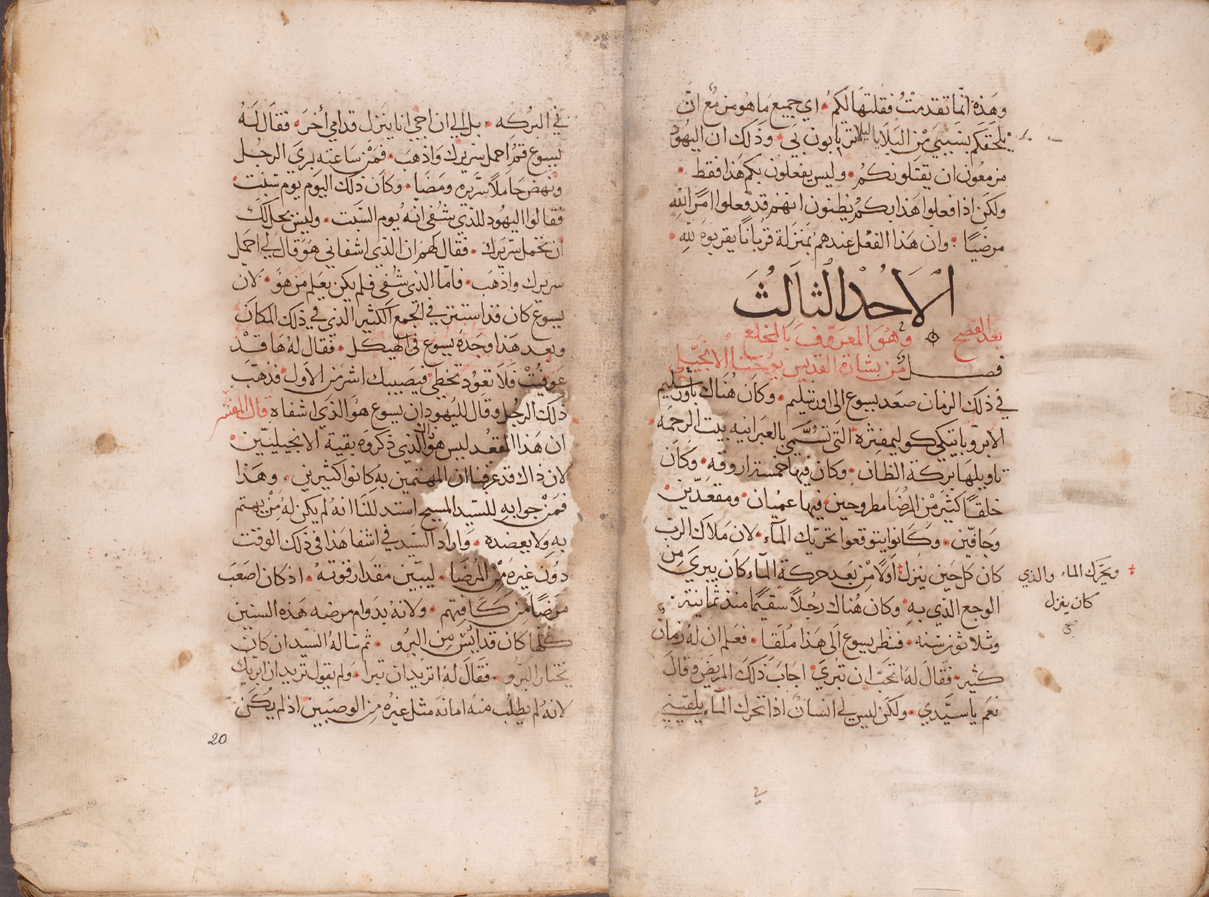 وهذه انما تقدمت فقلتها لكم • اي جميع ما هو مزمع ان
يلحقكم بسببي من البلايا لئلا ترتابون بي • وذلك ان اليهود
مزمعون ان يقتلوكم • وليس يفعلون بكم هذا فقط •
ولكن اذا فعلوا هذا بكم يظنون انهم قد فعلوا امرًا لله
مرضيًا • وان هذا الفعل عندهم بمنزلة قربانًا يقربوه لله •
الاحد الثالث
بعد الفصح وهو المعروف بالمخلع
فصل من بشارة القديس يوحنا الانجيلي
في ذلك الزمان صعد يسوع الى اورشليم • وكان هناك باورشليم
الابروباتيكي كوليمفثره التي تسمى بالعبرانيه بيت الرحمه
تاويلها بركة الظان • وكان فيها خمسة اروقه • وكان
خلقًا كثير من المرضا مطروحين فيها عميان • ومقعدين •
وجافين • وكانوا يتوقعوا تحريك الماء • لان ملاك الرب
كان كل حين ينزل اولا من بعد حركة الماء كان يبرى من
ويحرك الماء والذي
كان ينزل
صح
الوجع الذي به • وكان هناك رجلاً سقيمًا منذ ثمانية
وثلاثون سنه • فنظر يسوع الى هذا ملقا • فعلم ان له زمان
كثير • فقال له اتحب ان تبرى • اجاب ذلك المريض وقال
نعم يا سيدي • ولكن ليس لي انسان اذا تحرك الماء يلقيني
في البركه • بل الى ان اجي انا ينزل قدامي أخر • فقال له
يسوع قم احمل سريرك واذهب • فمن ساعته بري الرجل
ونهض حاملا سريره ومضا • وكان ذلك اليوم يوم سبت
فقالوا اليهود للذي شفي انه يوم السبت • وليس يحل لك
ان تحمل سريرك • فقال لهم ان الذي اشفاني هو قال لي احمل
سريرك واذهب • فاما الذي شفي فلم يكن يعلم من هو • لان
يسوع كان قد استتر في الجمع الكثير الذي في ذلك المكان
وبعد هذا وجده يسوع في الهيكل • فقال له ها قد
عوفيت فلا تعود تخطي • فيصيبك اشر من الاول • فذهب
ذلك الرجل وقال لليهود ان يسوع هو الذي اشفاه قال المفسر
ان هذا المقعد ليس هو الذي ذكروه بقية الانجيليين
لان ذاك قد عرفنا ان المهتمين به كانوا كثيرين • وهذا
فمن جوابه للسيد المسيح استدللنا انه لم يكن له من يهتم
به ولا يعضده • واراد السيد في اشفا هذا في ذلك الوقت
دون غيره من المرضا • ليبين مقدار قوته • اذ كان اصعب
مرضًا من كافتهم • ولانه بدوام مرضه هذه السنين
كلها كان قد ايس من البرو • ثم ساله السيد ان كان
يختار البرو • فقال له اتريد ان تبرا • ولم يقول تريد ان ابريك
لانه لم يطلب منه امانه مثل غيره من الوصبين اذ لم يكن
20